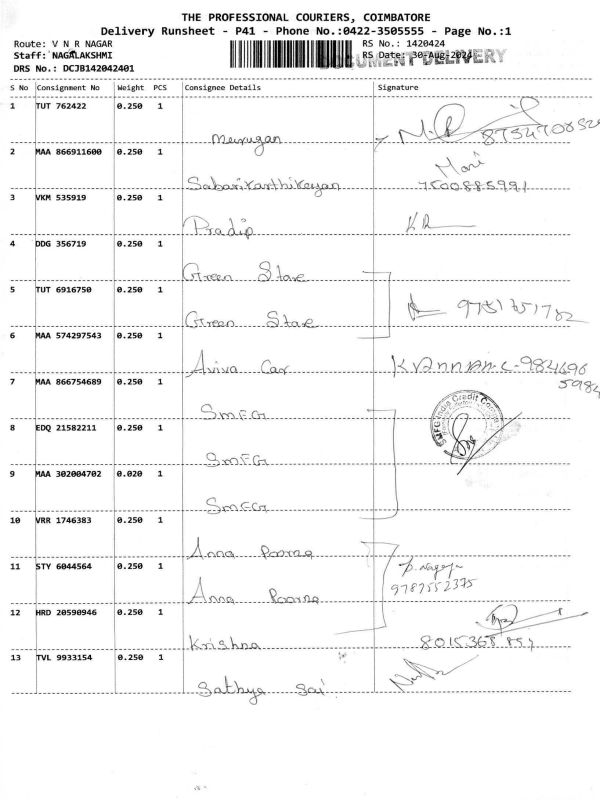 THE PROFESSIONAL COURIERS, COIMBATORE
Delivery Runsheet - P41 - Phone No.:0422-3505555 - Page No.:1
Route: V N R NAGAR RS No.: 1420424
Staff: NAGALAKSHMI RS Date: 30-Aug-2024
DOCUMENT DELIVERY
DRS No.: DCJB142042401
S No Consignment No Weight PCS Consignee Details Signature
1 TUT 762422 0.250 1
Murugan
2 MAA 866911600 0.250 1
Mari
Sabarikarthikeyan 7500885991
3 VKM 535919 0.250 1
Pradip KR
4 DDG 356719 0.250 1
Green Stare
5 TUT 6916750 0.250 1
Green Stare
6 MAA 574297543 0.250 1
Aviva Car
7 MAA 866754689 0.250 1
SMFG
SMFG India Credit
8 EDQ 21582211 0.250 1
SMFG
9 MAA 302004702 0.020 1
SMFG
10 VRR 1746383 0.250 1
Anna Poorna
11 STY 6044564 0.250 1
9787552375
Anna Poorna
12 HRD 20590946 0.250 1
Krishna
13 TVL 9933154 0.250 1
Sathya Sai